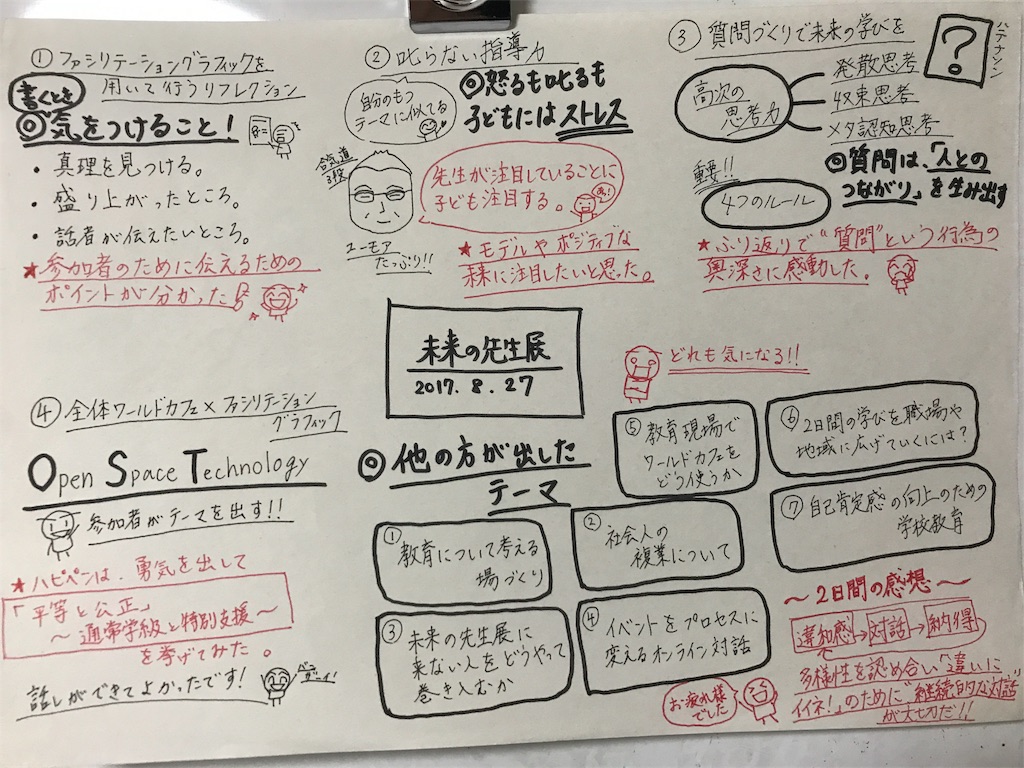 ① ファシリテーショングラフィックを
用いて行うリフレクション
書くとき
◎気をつけること!
・真理を見つける。
・盛り上がったところ。
・話者が伝えたいところ。
★参加者のために伝えるための
ポイントが分かった♪
② 叱らない指導力
自分のもつ
テーマに似てる
◎怒るも叱るも
子どもにはストレス
合気道
3段
先生が注目していることに
子ども注目する。
あ!
ユーモア
たっぷり!!
★モデルやポジティブな
未来に注目したいと思った。
③ 質問づくりで未来の学びを
?
ハテナソン
高次の
思考力
発散思考
収束思考
メタ認知思考
重要!!
4つのルール
◎質問は、「人との
つながり」を生み出す
★ふり返りで“質問”という行為の
奥深さに感動した。
未来の先生展
2017.8.27
④ 全体ワールドカフェ×ファシリテーション
グラフィック
Open Space Technology
参加者がテーマを出す!!
★ハピペンは、勇気を出して
「平等と公正」
~通常学級と特別支援~
を挙げてみた。
話しができてよかったです!
◎他の方が出した
テーマ
どれも気になる!!
① 教育について考える
場づくり
② 社会人の
複業について
③ 未来の先生展に
来ない人をどうやって
巻き込むか
④ イベントをプロセスに
変えるオンライン対話
⑤ 教育現場で
ワールドカフェを
どう使うか
⑥ 2日間の学びを職場や
地域に広げていくには?
⑦ 自己肯定感の向上のための
学校教育
~2日間の感想~
違和感→対話→納得
多様性を認め合い「違いに
イイネ!」のために“継続的な対話”
が大切だ!!
お疲れ様
でした